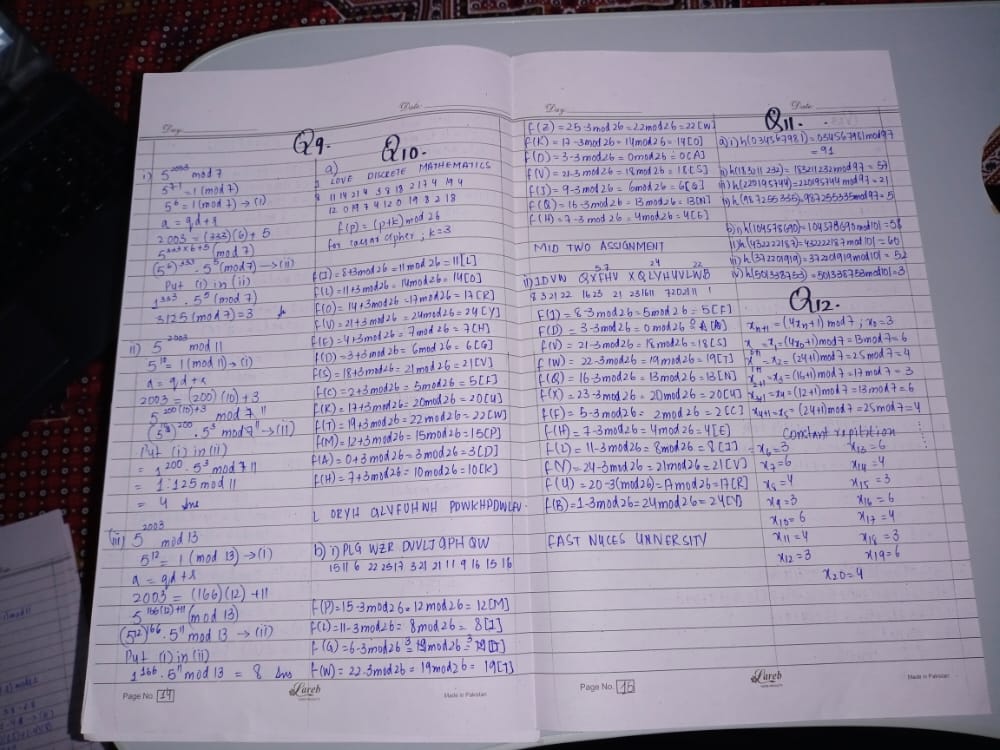 Day
Date:
Q9.
i) 5^2003 mod 7
5^7-1 = 1 (mod 7)
5^6 = 1 (mod 7) → (i)
a = qd + r
2003 = (333)(6) + 5
5^333×6+5 (mod 7)
(5^6)^333 . 5^5 (mod 7) → (ii)
Put (i) in (ii)
1^333 . 5^5 (mod 7)
3125 (mod 7) = 3
ii) 5^2003 mod 11
5^10 = 1 (mod 11) → (i)
a = qd + r
2003 = (200)(10) + 3
5^200(10)+3 mod 7 11
. 5^3 mod 7 11 → (ii)
Put (i) in (ii)
= 1^200 . 5^3 mod 7 11
= 1.125 mod 11
= 4 Ans
(iii) 5^2003 mod 13
5^12 = 1 (mod 13) → (i)
a = qd + r
2003 = (166)(12) + 11
5^166(12)+11 (mod 13)
(5^12)^166 . 5^11 mod 13 → (ii)
Put (i) in (ii)
1^166 . 5^11 mod 13 = 8 Ans
Page No. 14
Q10.
a)
I LOVE DISCRETE MATHEMATICS
8 11 14 21 4 3 8 18 2 17 4 19 4
12 0 19 7 4 12 0 19 8 2 18
f(p) = (p+k) mod 26
for cipher ; k=3
f(I) = 8+3mod26 = 11mod26 = 11[L]
f(L) = 11+3mod26 = 14mod26 = 14[O]
f(O) = 14+3mod26 = 17mod26 = 17[R]
f(V) = 21+3mod26 = 24mod26 = 24[Y]
f(E) = 4+3mod26 = 7mod26 = 7[H]
f(D) = 3+3mod26 = 6mod26 = 6[G]
f(S) = 18+3mod26 = 21mod26 = 21[V]
f(C) = 2+3mod26 = 5mod26 = 5[F]
f(R) = 17+3mod26 = 20mod26 = 20[U]
f(T) = 19+3mod26 = 22mod26 = 22[W]
f(M) = 12+3mod26 = 15mod26 = 15[P]
f(A) = 0+3mod26 = 3mod26 = 3[D]
f(H) = 7+3mod26 = 10mod26 = 10[K]
L ORYH GLVFUHWH PDWKHPDWLFV.
b) i) PLG WZR DVVLJQPHQW
15 11 6 22 25 17 3 21 21 11 9 16 15 16
f(P) = 15-3mod26 = 12mod26 = 12[M]
f(L) = 11-3mod26 = 8mod26 = 8[I]
f(G) = 6-3mod26
f(W) = 22-3mod26 = 19mod26 = 19[T]
Lareb
Made in Pakistan
Day
Date:
f(Z) = 25-3mod26 = 22mod26 = 22[W]
f(R) = 17-3mod26 = 14mod26 = 14[O]
f(D) = 3-3mod26 = 0mod26 = 0[A]
f(V) = 21-3mod26 = 18mod26 = 18[S]
f(J) = 9-3mod26 = 6mod26 = 6[G]
f(Q) = 16-3mod26 = 13mod26 = 13[N]
f(H) = 7-3mod26 = 4mod26 = 4[E]
MID TWO ASSIGNMENT
ii) IDVW QXFHV XQLYHUVLWB
f(I) = 8-3mod26 = 5mod26 = 5[F]
f(D) = 3-3mod26 = 0mod26
f(V) = 21-3mod26 = 18mod26 = 18[S]
f(W) = 22-3mod26 = 19mod26 = 19[T]
f(Q) = 16-3mod26 = 13mod26 = 13[N]
f(X) = 23-3mod26 = 20mod26 = 20[U]
f(F) = 5-3mod26 = 2mod26 = 2[C]
f(H) = 7-3mod26 = 4mod26 = 4[E]
f(L) = 11-3mod26 = 8mod26 = 8[I]
f(Y) = 24-3mod26 = 21mod26 = 21[V]
f(U) = 20-3(mod26) = 17mod26 = 17[R]
f(B) = 1-3mod26 = 24mod26 = 24[Y]
FAST NUCES UNIVERSITY
Page No. 15
Q11.
a) i) h(034567981) = 034567981mod97
= 91
ii) h(183211232) = 183211232mod97 = 57
iii) h(220195744) = 220195744mod97 = 21
iv) h(987255335) = 987255335mod97 = 5
b) i) h(104578690) = 104578690mod101 = 58
ii) h(432222187) = 432222187mod101 = 60
iii) h(372201919) = 37201919mod101 = 52
iv) h(501338753) = 501338753mod101 = 3
Q12.
xn+1 = (4xn+1)mod7 ; x0 = 3
x1 = (4x0+1)mod7 = 13mod7 = 6
x2 = (24+1)mod7 = 25mod7 = 4
x3 = (16+1)mod7 = 17mod7 = 3
x4 = (12+1)mod7 = 13mod7 = 6
x4+1 = x5 = (24+1)mod7 = 25mod7 = 4
Constant repitition
x6 = 3
x7 = 6
x8 = 4
x9 = 3
x10 = 6
x11 = 4
x12 = 3
x13 = 6
x14 = 4
x15 = 3
x16 = 6
x17 = 4
x18 = 3
x19 = 6
x20 = 4
Lareb
Made in Pakistan